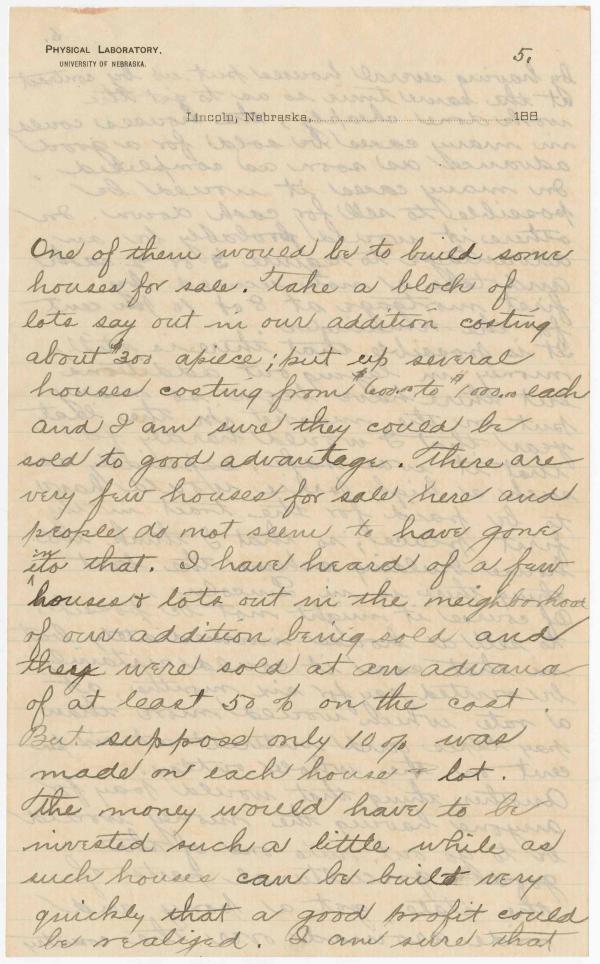 PHYSICAL LABORATORY,
UNIVERSITY OF NEBRASKA.
5.
Lincoln, Nebraska, 188
One of them would be to build some
houses for sale. Take a block of
lots say out in our addition costing
about $300 apiece; put up several
houses costing from $600.00 to $1000.00 each
and I am sure they could be
sold to good advantage. There are
very few houses for sale here and
people do not seem to have gone
into that. I have heard of a few
houses & lots out in the neighborhood
of our addition being sold and
they were sold at an advance
of at least 50 % on the cost.
But suppose only 10 % was
made on each house & lot.
The money would have to be
invested such a little while as
such houses can be built very
quickly that a good profit could
be realized. I am sure that